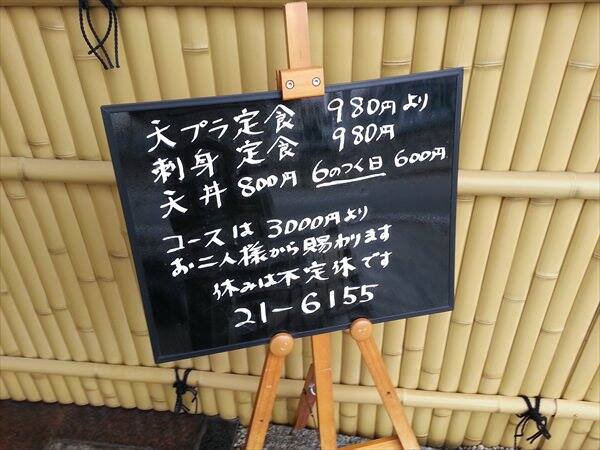 天プラ定食 980円より
刺身定食 980円
天丼 800円 6のつく日 600円
コースは 3000円より
お二人様から賜わります
休みは不定休です
21-6155